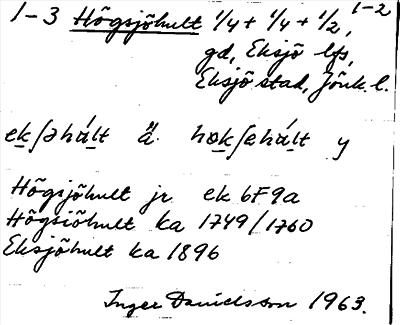 1-3 Högsjöhult 1/4 + 1/4 + 1/2, 1-2
gd, Eksjö lfs,
Eksjö stad, Jönk. l.
ekʃəhált ä. hɒkʃəhált y
Högsjöhult jr ek 6F9a
Högsiöhult ka 1749/1760
Eksjöhult ka 1896
Inger Danielsson 1963.